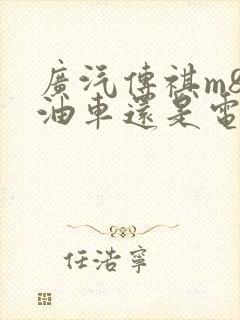 廣汽傳祺m8
油車還是電
任浩寧